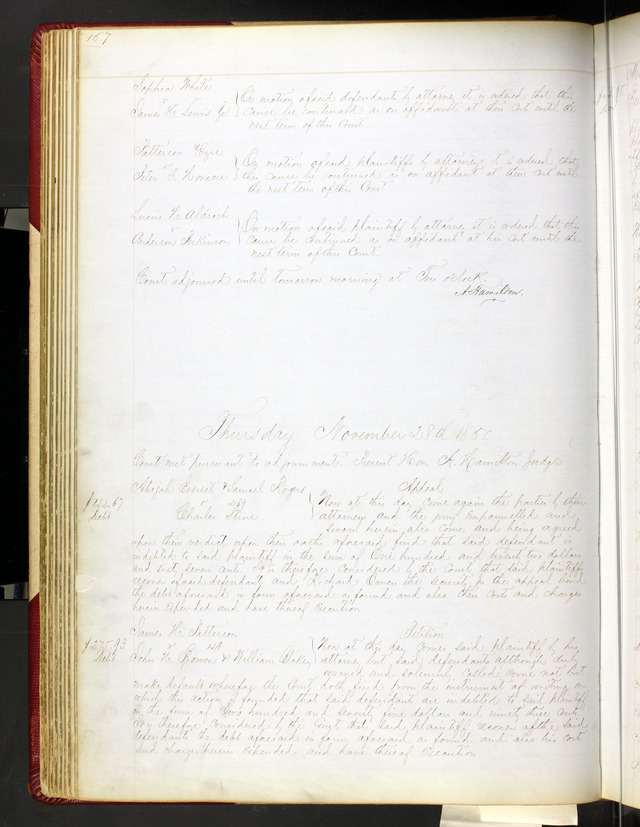 167
Sophia White
vs
James H. Lewis Jr
On motion of said defendants by attorney it is ordered that this
Cause be continued as on affidavit at their Cost until the
next term of this Court
Patterson
vs
Peter
On motion of said plaintiffs by attorneys it is ordered that
this cause be continued as on affidavit at their Cost until
the next term of this Court
Lewis H. Aldrich
vs
Anderson
On motion of said plaintiff by attorney it is ordered that this
Cause be continued as on affidavit at his Cost until the
next term of this Court
Court adjourned until tomorrow morning at o'clock.
A Hamilton.
Thursday November 28th
Court met pursuant to adjournment. Present Hon A. Hamilton Judge
Abijah & Samuel Rogers
vs
Charles Stone
Appeal
Debt
Now at this day come again the parties by their
attorneys and the jury empannelled and
sworn herein also come and being agreed
upon their verdict upon their oaths aforesaid find that said defendant is
indebted to said plaintiff in the sum of One hundred and two dollars
and sixty seven cents It is therefore Considered by the Court that said plaintiffs
recover of said defendant and Richard the security in the appeal bond
the debt aforesaid in form aforesaid as found and also their costs and charges
herein expended and have thereof Execution
James H. Patterson
vs 428
John H. Bowen & William Blakey
Petition
Debt
Now at this day comes said plaintiff by his
attorney but said defendants although duly
warned and solemnly called come not but
make default wherefore the Court doth find from the instrument of writing on
which this action is founded that said defendants are indebted to said plaintiff
in the sum of Two hundred and seventy five dollars and ninety three cents
It is therefore Considered by the Court that said plaintiff recover of the said
defendants the debt aforesaid in form aforesaid as found and also his costs
and charges herein expended and have thereof Execution